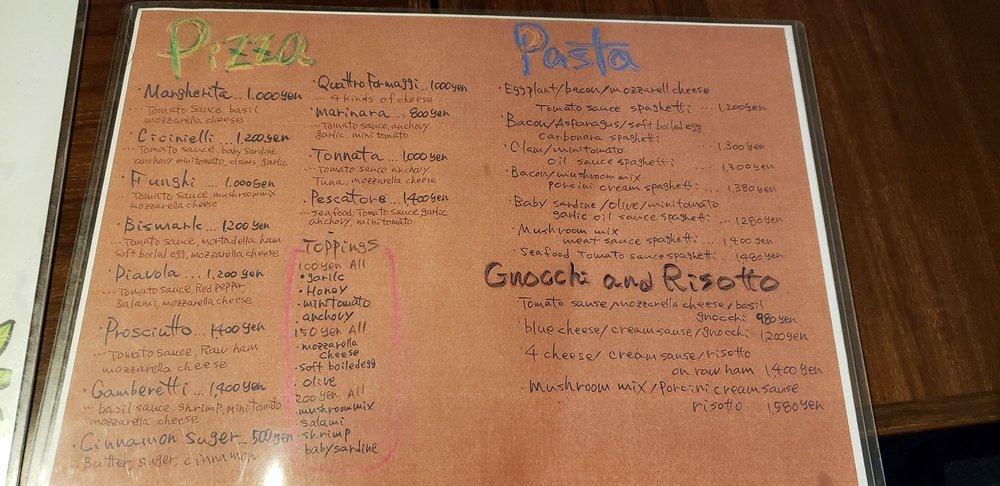 Pizza
· Margherita ... 1.000yen
... Tomato Sauce, basil
mozzarella cheese
· Cicinielli ... 1,200yen
... Tomato sauce, baby sardine
anchovy minitomato, clams, garlic
· Funghi ... 1.000yen
... Tomato sauce, mushroommix
mozzarella cheese
· Bismark ... 1200yen
... Tomato sauce, mortadella ham
soft boiled egg, mozzarella cheese
· Diavola ... 1.200yen
... Tomato Sauce, Red pepper,
Salami, mozzarella cheese
· Prosciutto ... 1400yen
... Tomato Sauce, Raw ham
mozzarella cheese
· Gamberetti ... 1,400yen
... basil sauce, shrimp, mini tomato
mozzarella cheese
· Cinnamon suger ... 500yen
Butter, suger, cinnamon
· Quattro Formaggi ... 1000yen
... 4 kinds of cheese
· Marinara ... 800yen
... Tomato sauce, anchovy
garlic, minitomato
· Tonnata ... 1,000yen
... Tomato sauce anchovy
Tuna, mozzarella cheese
· Pescatore ... 1400yen
... Seafood, Tomato sauce, garlic
anchovy, minitomato
Toppings
100yen All
· garilc
· Honey
· minitomato
· anchovy
150yen All
· mozzarella
cheese
· soft boiledegg
· olive
200yen All
· mushroommix
· salami
· shrimp
· babysardine
Pasta
· Eggplant/bacon/mozzarell cheese
Tomato sauce spaghetti ... 1,200yen
· Bacon/Asparagus/soft boiled egg
carbonara spaghetti
... 1,300yen
· Clam/minitomato
oil sauce spaghetti
... 1,300yen
· Bacon/mushroom mix
porcini cream spaghetti ... 1,380yen
· Baby sardine/olive/minitomato
garlic oil sauce spaghetti ... 1280yen
· Mushroom mix
meat sauce spaghetti ... 1400yen
· Seafood Tomato sauce spaghetti ... 1480yen
Gnocchi and Risotto
· Tomato sause/mozzarella cheese/basil
gnocchi 980yen
· blue cheese/cream sause/gnocchi 1,200yen
· 4 cheese/cream sause/risotto
on raw ham 1400yen
· Mushroom mix/Porcini cream sause
risotto 1,580yen